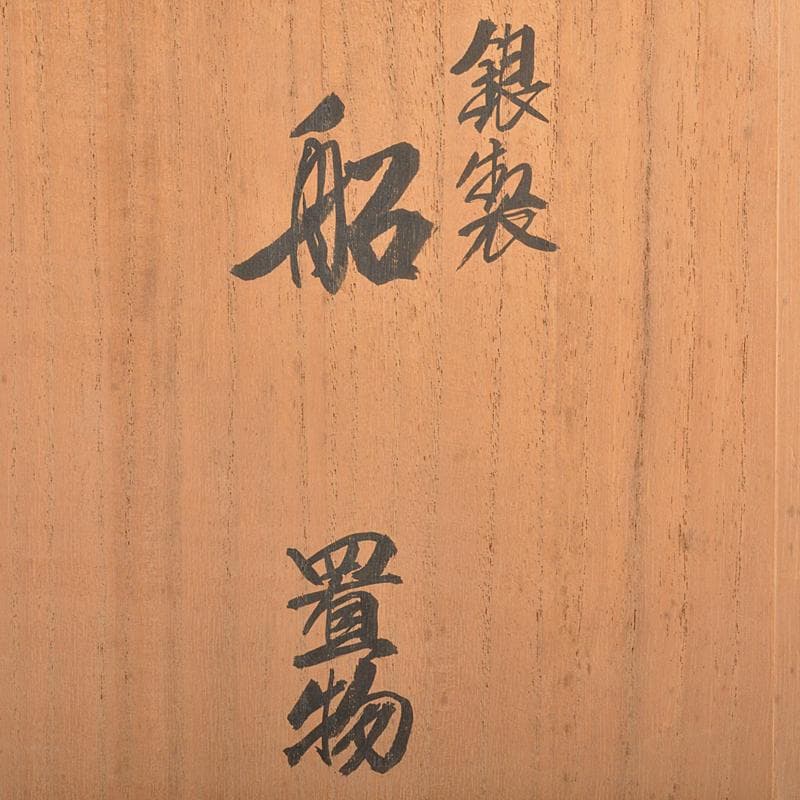 銀製
船 置物